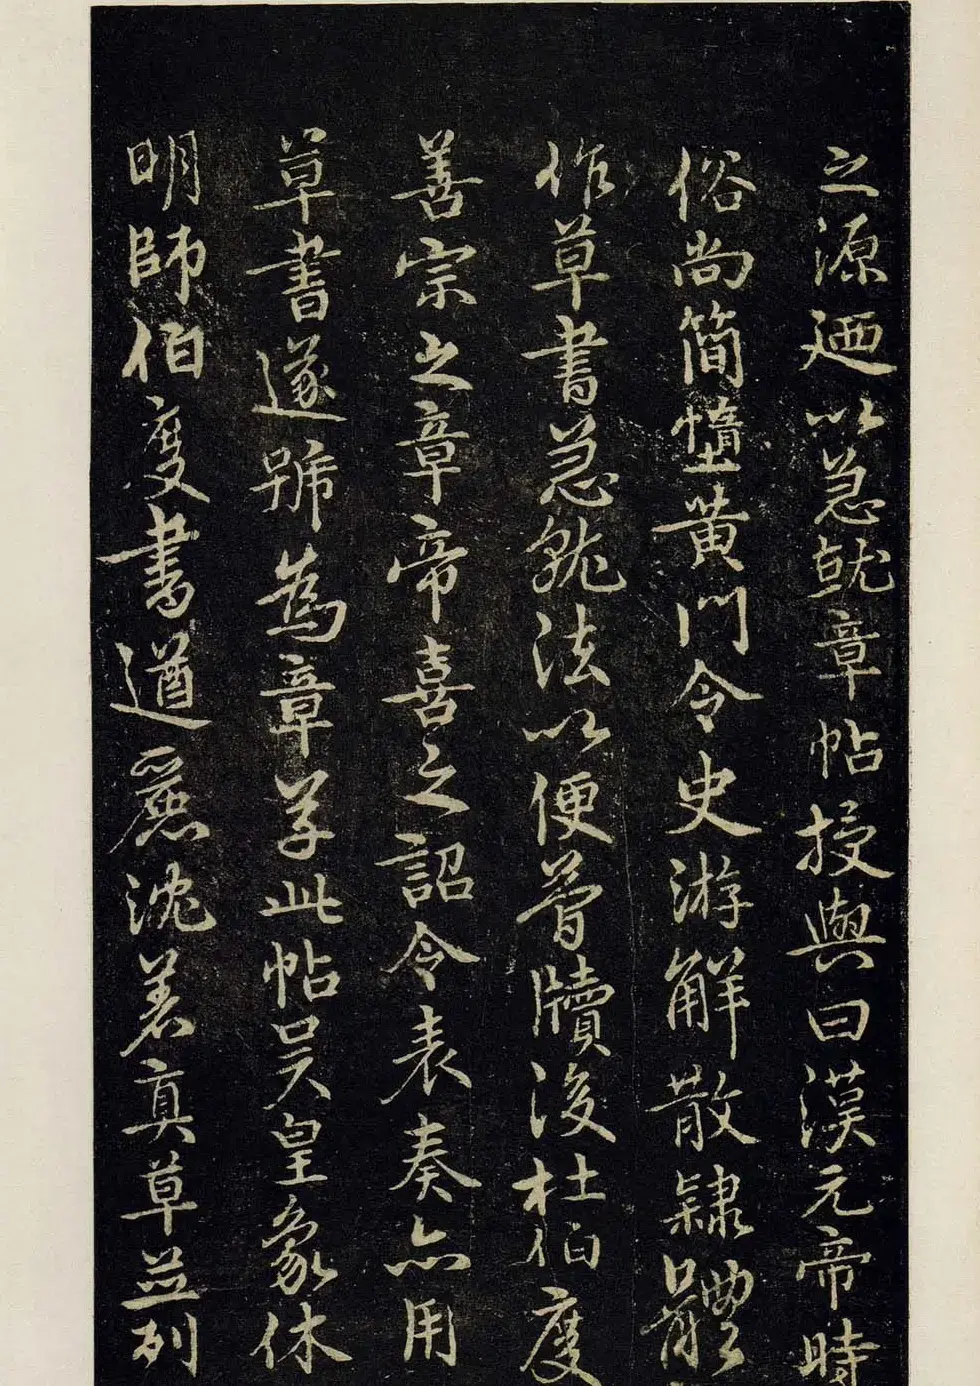 之源迺以急就章帖授與曰漢元帝時
俗尚簡墮黃門令史游解散隸體
作草書急就法以便菅牘後杜伯度
善宗之章帝喜之詔令表奏亦用
草書遂號為章草此帖吳皇象休
明師伯度書遒麗沈著真草並列